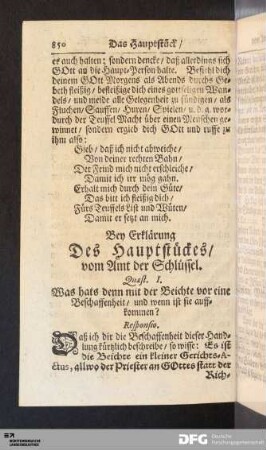 850 Das Hauptstück/
es auch halten; sondern dencke/ daß allerdings sich
GOtt an die Haupt-Person halte. Befiehl dich
deinem GOtt Morgens als Abends durchs Ge-
beth fleißig/ befleißige dich eines gottseligen Wan-
dels/ und meide alle Gelegenheit zu sündigen/ als
Fluchen/ Sauffen/ Huren/ Spielen/ u. d. a. wo-
durch der Teuffel Macht über einen Menschen ge-
winnet/ sondern ergieb dich GOtt und ruffe zu
ihm also:
Gieb/ daß ich nicht abweiche/
Von deiner rechten Bahn/
Der Feind mich nicht erschleiche/
Damit ich irr mög gahn.
Erhalt mich durch dein Güte/
Das bitt ich fleißig dich/
Fürs Teuffels List und Wüten/
Damit er setzt an mich.
Bey Erklärung
Des Hauptstückes/
vom Amt der Schlüssel.
Quæst. I.
Was hats denn mit der Beichte vor eine
Beschaffenheit/ und wenn ist sie auff-
kommen?
Responsio.
Daß ich dir die Beschaffenheit dieser Hand-
lung kürtzlich beschreibe/ so wisse: Es ist
die Beichte ein kleiner Gerichts-A-
ctus, allwo der Priester an GOttes statt der
Rich-
DFG
Deutsche
Forschungsgemeinschaft